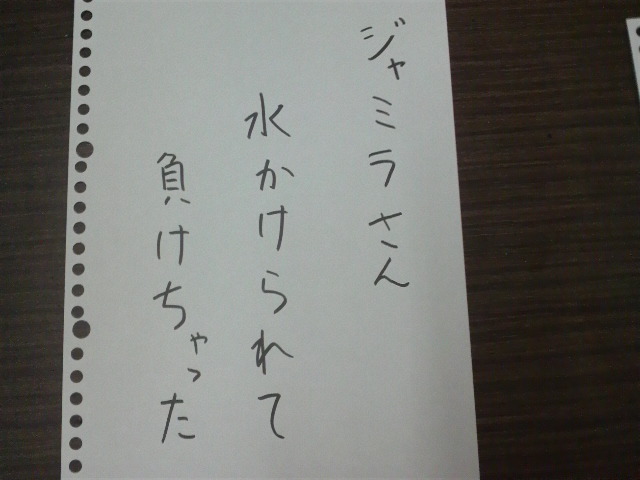 ジャミラさん
水かけられて
負けちゃった